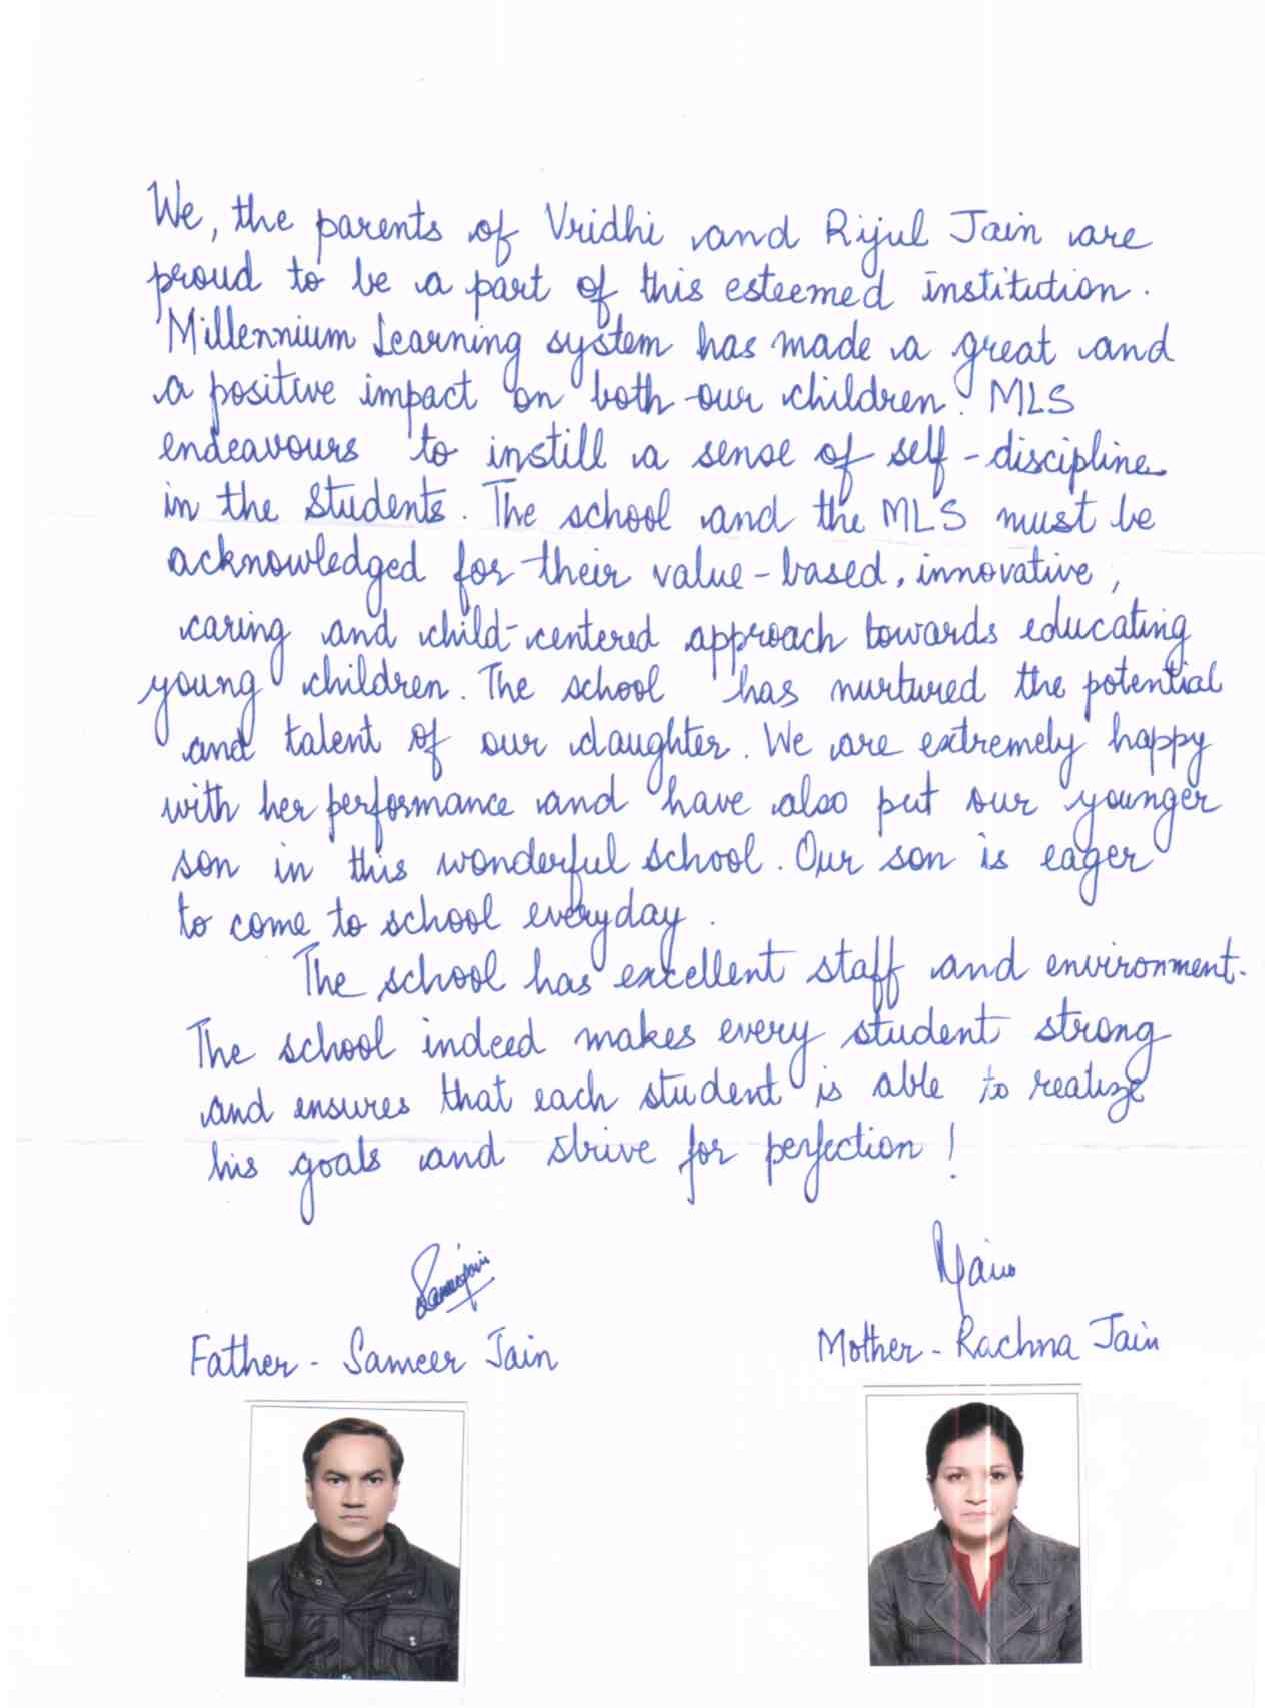 We, the parents of Vridhi and Rijul Jain are
proud to be a part of this esteemed institution.
Millennium Learning system has made a great and
a positive impact on both our children. MLS
endeavours to instill a sense of self-discipline
in the students. The school and the MLS must be
acknowledged for their value-based, innovative,
caring and child-centered approach towards educating
young children. The school has nurtured the potential
and talent of our daughter. We are extremely happy
with her performance and have also put our younger
son in this wonderful school. Our son is eager
to come to school everyday.
The school has excellent staff and environment.
The school indeed makes every student strong
and ensures that each student is able to realize
his goals and strive for perfection!
Father - Sameer Jain
Mother - Rachna Jain